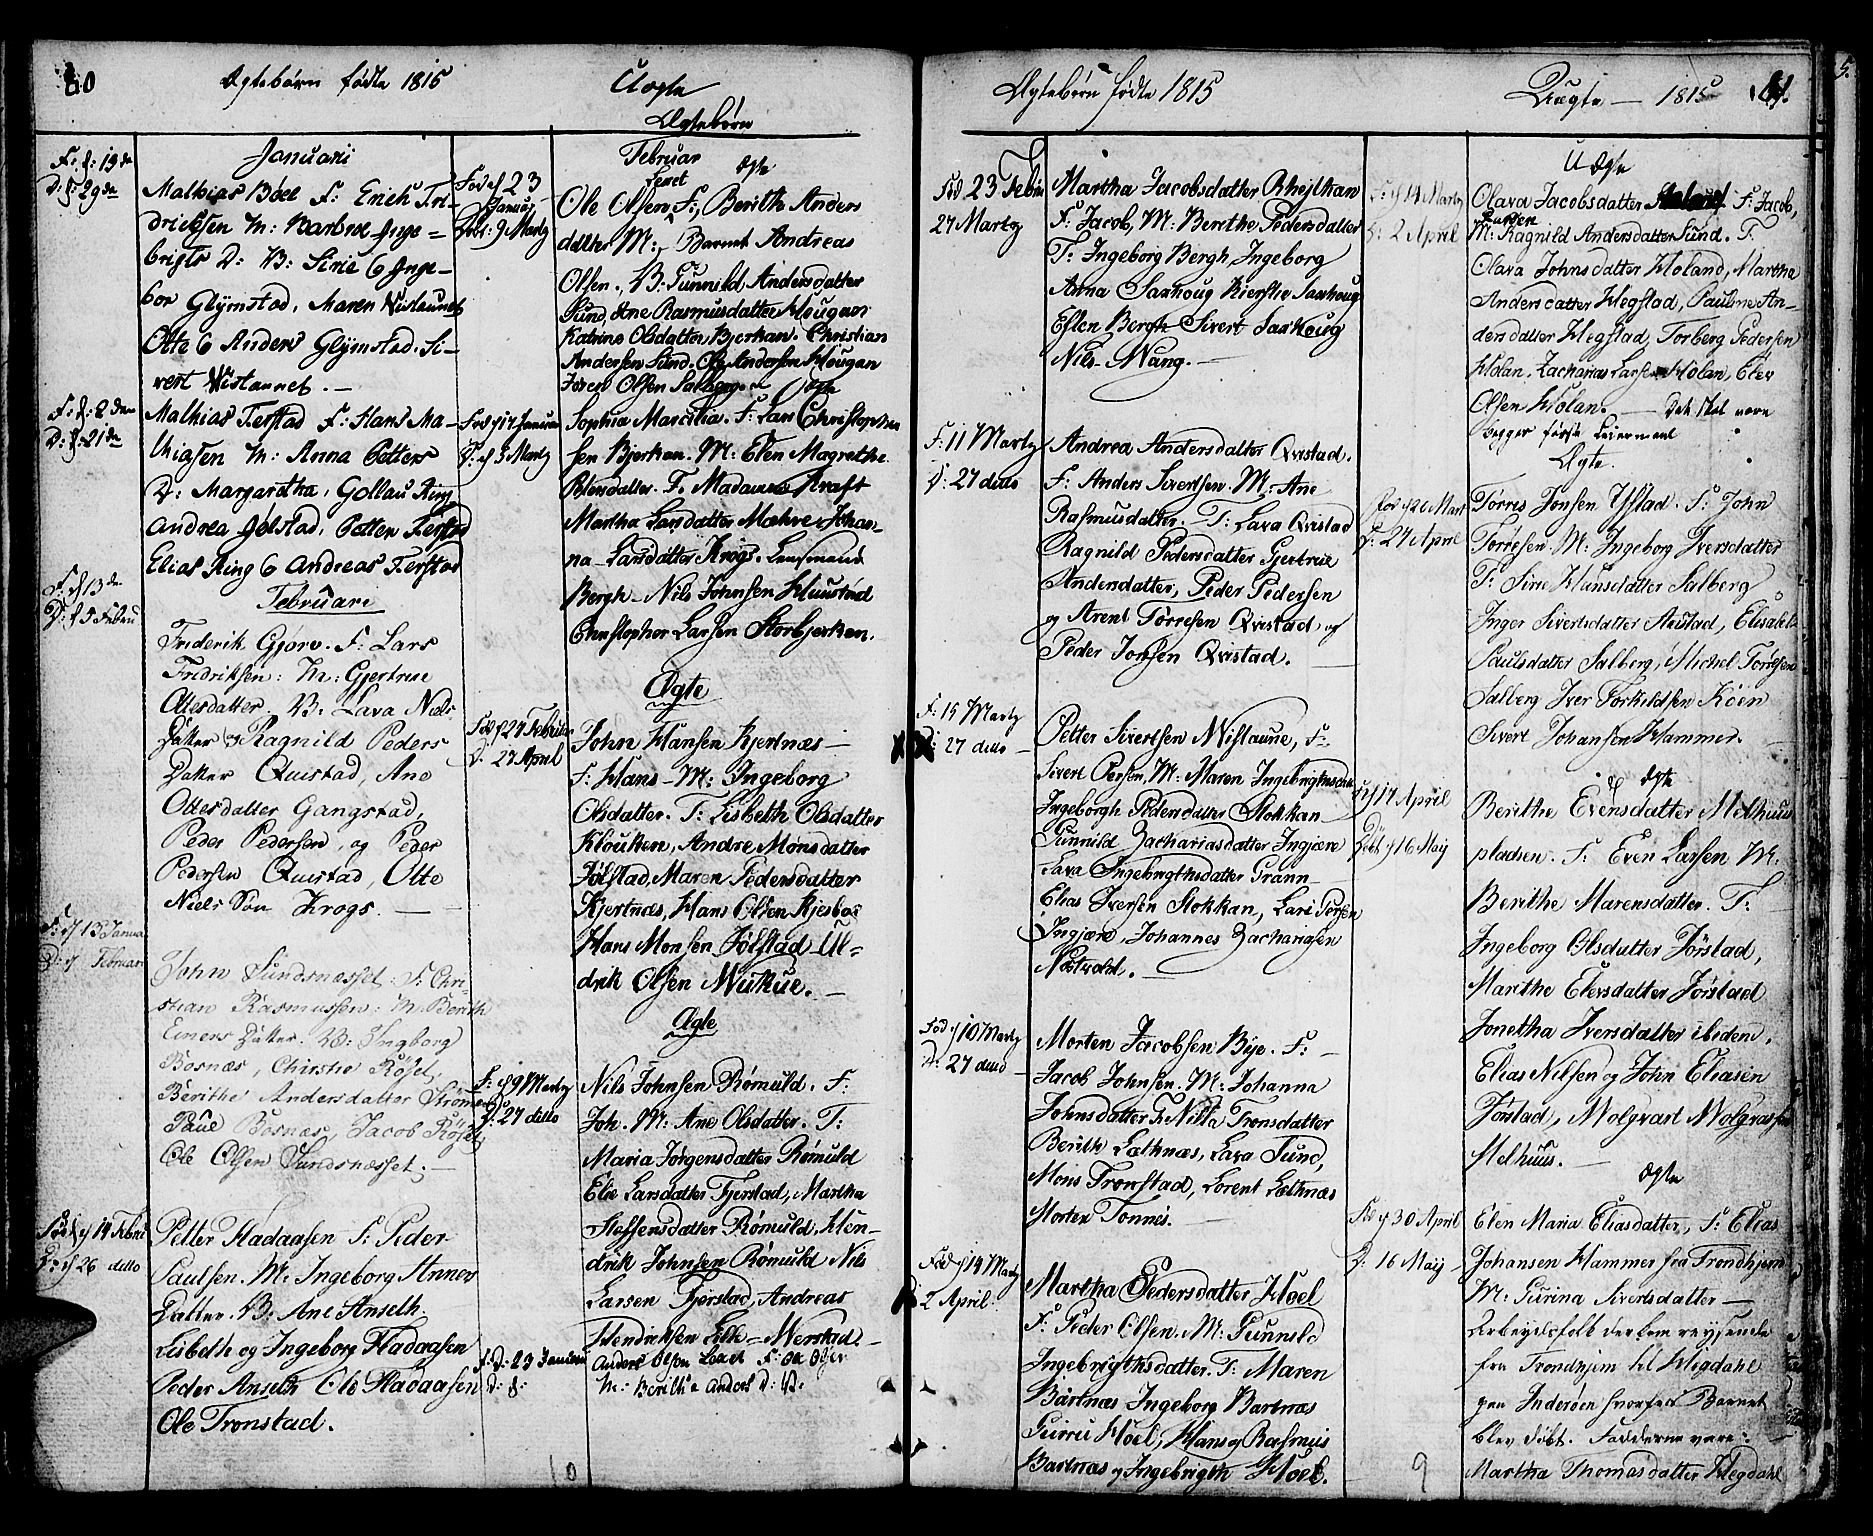 80
Ægtebørn fødte 1815
Uægte
Ægtebørn
F: d: 19de
D: d: 29de
Januarii
Mathias Bøel F: Erich Fri-
dricksen M: Barbro Inge-
brigts D: B: Siric 6 Inge-
bor Glÿmstad, Maren Wislaunet
Otte 6 Anders Glÿmstad. Si-
vert Wislaunet. —
F: d: 2den
D: d: 21de
Mathias Ferstad F: Hans Ma-
thiasen M: Anna Petters
D: Margaretha, Gollau Ring
Andrea Jølstad, Petter Ferstad
Elias Ring 6 Andreas Ferstad
F: d 13de
D: d 5 Febru
Februari
Friderik Gjørv. F: Lars
Fridriksen: M: Gjertrue
Ottesdatter. B: Lava Niels
Datter og Ragnild Peders
Datter Quistad, Ane
Ottesdatter Gangstad,
Peder Pedersen, og Peder
Pedersen Quistad, Otte
Niels Søn Krogs. —
F: d 13 Janua
D: d Februar
John Sundsnæsset: F: Chri-
stian Rasmussen: M: Berith
Einers Datter. B: Ingborg
Bosnæs, Chirstie Røsel,
Berithe Andersdatter Strømen
Paul Bosnæs, Jacob Røsel,
Ole Olsen Sundsnæsset. —
Fød d 14 Febru
D: d 26 ditto
Petter Fladaasen F: Peder
Paulsen. M: Ingeborg Arnes
Datter. B: Ane Anselh.
Lisbeth og Ingeborg Fladaasen
Peder Anselh Ole Fladaasen
Ole Tronstad.
Fød d 23
Januar
Døbt: 9 Martz
Februar
Ægte
Lexet
Ole Olsen F: Berith Anders
datter M: Barnet Andreas
Olsen. B: Gunnild Andersdatter
Sund, Ane Rasmusdatter Hougan
Katrine Olsdatter Bjerkan. Christian
Andersen Sund. Ole Andersen Hougan
Joren Olsen Salberg Ægte
Fød d 17 Januar
D: d 3 Martz
Sophia Marcilia. F: Lars Christopher
sen Bjerkan. M: Elen Magrethe
Petersdatter. F. Madamme Kraft
Martha Larsdatter Mæhre Johan-
na Larsdatter Krogs. Lensmand
Bergh Nils Johnsen Huustad
Christopher Larsen Storbjerken.
Ægte
Fød d 27 Februar
D: 23 April
John Hansen Kjertnæs —
F: Hans — M: Ingeborg
Olsdatter. T: Lisbeth Olsdatter
Klouken, Andre Mønsdatter
Jølstad, Maren Pedersdatter
Kjertnæs, Hans Olsen Kjesboe
Hans Monsen Jølstad Ul-
drik Olsen Mukue. —
Ægte
F: d 9 Martz
D: 27 ditto
Nils Johnsen Rømuld. F:
Joh. M: Ane Olsdatter. T:
Maria Jørgensdatter Rømuld
Elie Larsdatter Fjerstad, Martha
Steffensdatter Rømuld, Hen-
drik Johnsen Rømuld Nils
Larsen Fjerstad, Andreas
Hendriksen Lille Werstad.
F: D: 23 Januari
D: d:
Anders Olsen Lexet F: Ole Olsen
M: Berithe Anders D: B:
10
Ægtebørn fødte 1815
Uægte — 1815
81.
Fød 23 Febru
27 Martz
Martha Jacobsdatter Rhejlhan
F: Jacob, M: Berithe Pedersdatter
T: Ingeborg Bergh, Ingeborg
Anna Saxhoug Kierstie Saxhoug
Eflen Bergh Sivert Saxhoug
Nils Wang. —
F: 11 Martz
D: 27 ditto
Andrea Andersdatter Qvistad.
F: Anders Sivertsen. M: Ane
Rasmusdatter. T: Lava Qvistad
Ragnild Pedersdatter Gjertrue
Andersdatter, Peder Pedersen
og Arent Tørresen Qvistad, og
Peder Jonsen Qvistad.
F: 15 Martz
D: 27 ditto
Petter Sivertsen Wislaune, F:
Sivert Persen, M: Maren Ingebrigtsdatter
Ingeborgh Pedersdatter Stokkan
Gunnild Zachariasdatter Ingjære
Lava Ingebrigthsdatter Grann
Elias Iversen Stokkan, Lars Torsen
Ingjære, Johannes Zachariasen
Næstvold.
Fød d 10 Martz
D: 27 ditto
Morten Jacobsen Bye. F: —
Jacob Johnsen. M: Johanna
Johnsdatter T: Nilla Tronsdatter
Berith Lælhnæs, Lava Sund,
Mons Tronstad, Lorent Lælhnæs
Morten Tonnes.
Fød d 14 Martz
2 April.
Martha Pedersdatter Hoel
F: Peder Olsen. M: Gunnild
Ingebrigthsdatter. T: Maren
Bartnæs Ingeborg Bartnæs
Guirru Hoel, Hans og Rasmus
Bartnæs og Ingebrigth Hoel.
F: d 14 Martz
D: 2 April
U Ægte
Olava Jacobsdatter F: Jacob,
M: Ragnild Andersdatter Sund. T:
Olava Johnsdatter Holand, Martha
Andersdatter Hegstad, Pauline An-
dersdatter Hegstad, Torberg Pedersen
Holan, Zacharias Larsen Holan, Elev
Olsen Holan. — Det skal være
begges første Leiermaal
Ægte.
Fød d 20 Mart
D: 27 April
Tørres Jonsen Ystad. F: John
Tørresen. M: Ingeborg Iversdatter
T: Sirie Hansdatter Salberg
Inger Sivertsdatter Austad, Elisabeth
Paulsdatter Salberg, Michel Torresen
Salberg Iver Torkildsen Koen
Sivert Johansen Hammer.
Ægte
F: d 17 April
Døbt d 16 Maij
Berithe Evensdatter Melhuus
pladsen. F: Even Larsen M:
Berithe Marensdatter. T:
Ingeborg Olsdatter Jørstad,
Marithe Elevsdatter Jørstad
Jonetha Iversdatter ibidem.
Elias Nilsen og John Eliasen
Jørstad, Wolgvart Wolgvarsen
Melhuus. —
Ægte
Fød d 30 April
D: 16 Maij
Elen Maria Eliasdatter, F: Elias
Johansen Hammer fra Trondhjem
M: Gurina Sivertsdatter —
Arbeydsfolk der kom reysende
fra Trondhjem til Hegdahl
paa Inderøen hvorfra Barnet
blev døbt. Fadderne vare:
Martha Thomasdatter Hegdahl
9